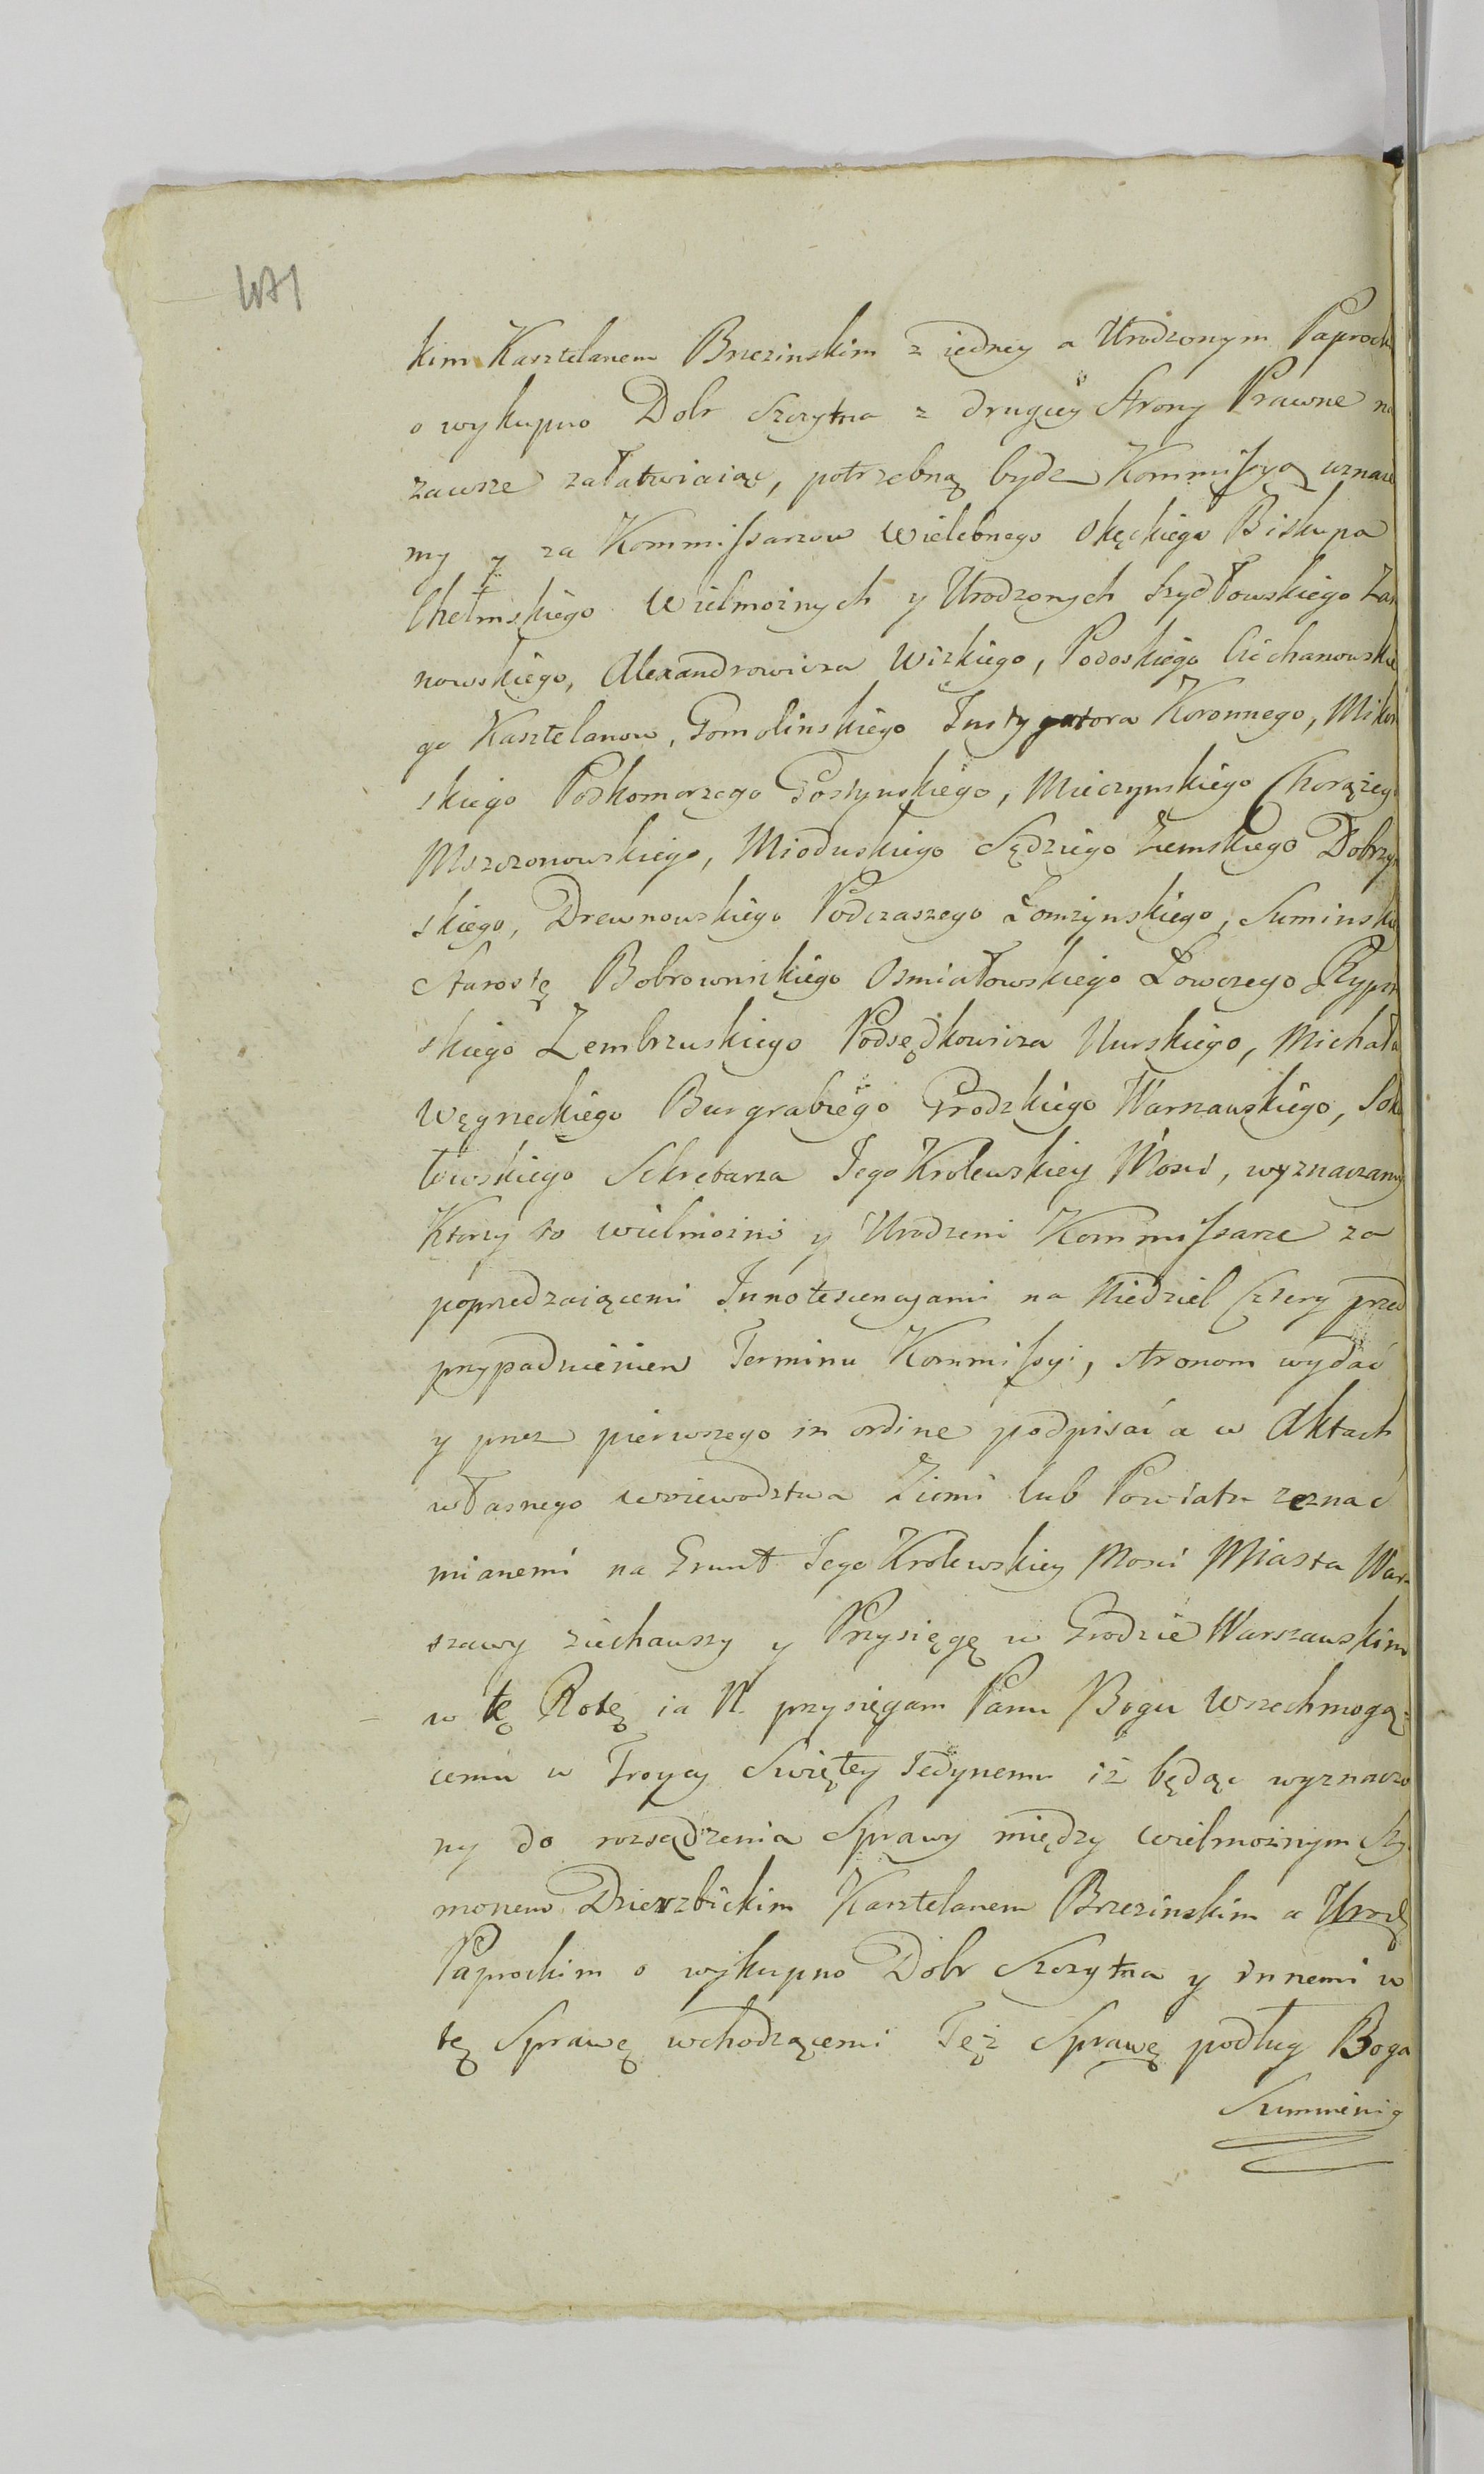 471
kim Kasztelanem Brzezinskim z iedney a Urodzonym Paprock
o wykupno Dobr Szczytna z drugiey Strony Prawne na
zawsze załatwiaiąc, potrzebną bydz Kommissyą uznaie
my y za Kommissarzow Wielebnego Okęckiego Biskupa
Chełmskiego Wielmożnych y Urodzonych Szydłowskiego Zar
nowskiego, Alexandrowicza Wizkiego, Podoskiego Ciechanowskie
go Kasztelanow, Gomolinskiego Instygatora Koronnego, Mikor
skiego Podkomorzego Gostynskiego, Mieczynskiego Chorążego
Mszczonowskiego, Mioduskiego Sędziego Ziemskiego Dobrzyn
skiego, Drewnowskiego Podczaszego Łomżynskiego, Suminskie
Starostę Bobrownickiego Osmiałowskiego Łowczego Rypin
skiego Zembrzuskiego Podsędkowicza Nurskiego, Michała
Węgrzeckiego Burgrabiego Grodzkiego Warszawskiego, Soko
łowskiego Sekretarza Jego Krolewskiey Mosci, wyznaczamy
Ktorzy to wielmożni y Urodzeni Kommissarze za
poprzedzaiącemi Innotescencyami na Niedziel Cztery przed
przypadnieniem Terminu Kommissyi, stronom wydać
y przez pierwszego in ordine podpisać a w Aktach
własnego woiewodztwa Ziemi lub Powiatu zeznać
mianemi na Grunt Jego Krolewskiey Mosci Miasta War
szawy ziechawszy y Przysięgę w Grodzie Warszawskim
w tę Rotę ia N. przysięgam Panu Bogu Wszechmogą=
cemu w Troycy Swiętey Jedynemu iż będąc wyznaczo
ny do rozsądzenia Sprawy między Wielmożnym Szy
monem Dzierzbickim Kasztelanem Brzezinskim a Urodz
Paprockim o wykupno Dobr Szczytna y innemi w
tę Sprawę wchodzącemi Tęż Sprawę podług Boga
Summieni